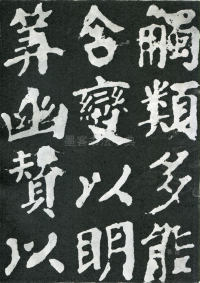 觸類多能
含變以明
筭幽贊以